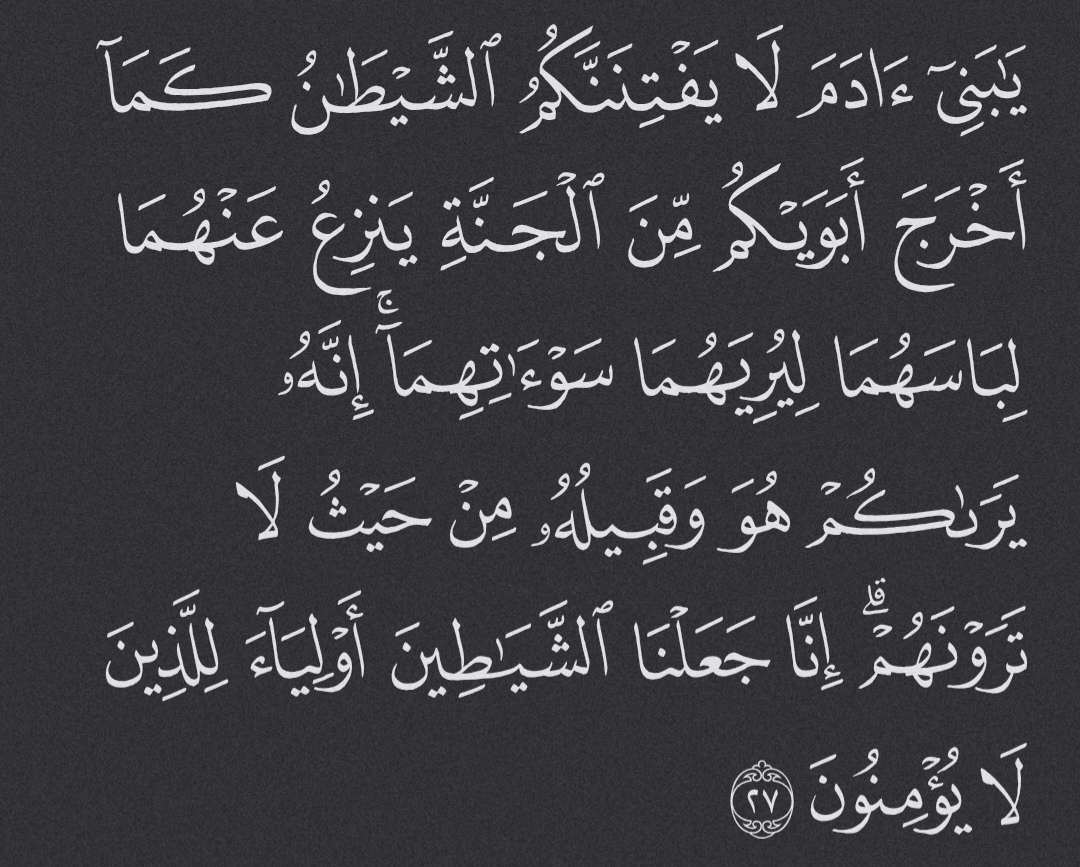 يَٰبَنِىٓ ءَادَمَ لَا يَفْتِنَنَّكُمُ ٱلشَّيْطَٰنُ كَمَآ
أَخْرَجَ أَبَوَيْكُم مِّنَ ٱلْجَنَّةِ يَنزِعُ عَنْهُمَا
لِبَاسَهُمَا لِيُرِيَهُمَا سَوْءَٰتِهِمَآ ۚ إِنَّهُۥ
يَرَىٰكُمْ هُوَ وَقَبِيلُهُۥ مِنْ حَيْثُ لَا
تَرَوْنَهُمْ ۗ إِنَّا جَعَلْنَا ٱلشَّيَٰطِينَ أَوْلِيَآءَ لِلَّذِينَ
لَا يُؤْمِنُونَ ٢٧